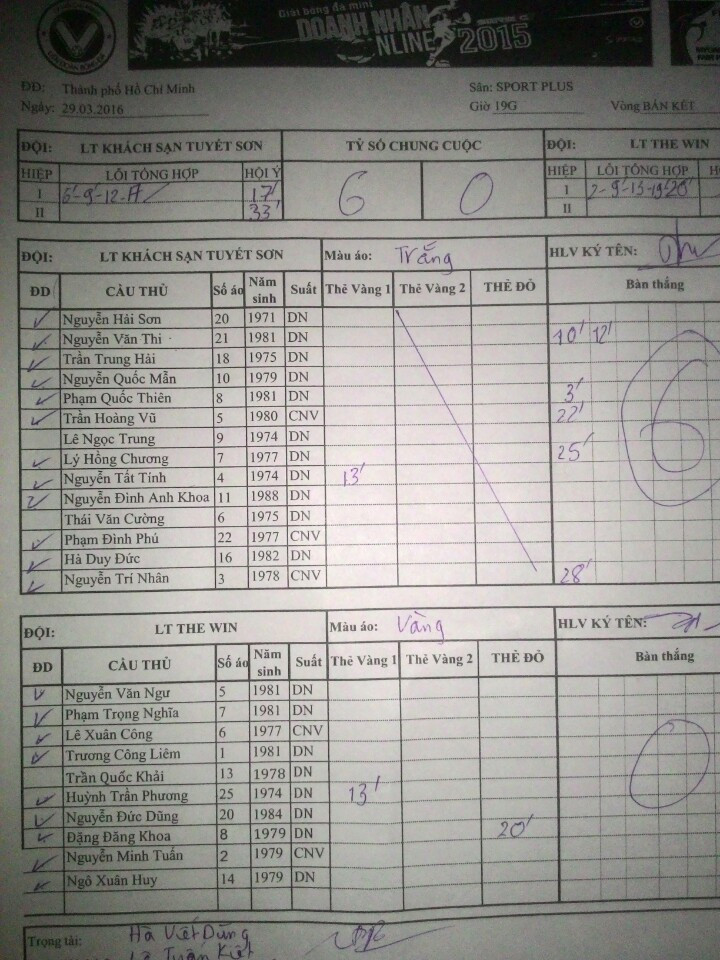 Giải bóng đá mini
DOANH NHÂN
NLINE 2015
ĐĐ: Thành phố Hồ Chí Minh Sân: SPORT PLUS
Ngày: 29.03.2016 Giờ 19G Vòng BÁN KẾT
ĐỘI: LT KHÁCH SẠN TUYẾT SƠN TỶ SỐ CHUNG CUỘC ĐỘI: LT THE WIN
HIỆP LỖI TỔNG HỢP HỘI Ý 6 0 HIỆP LỖI TỔNG HỢP
I 6'-9'-12-17 17' I 2-9'-13-19'20'
II 33' II
ĐỘI: LT KHÁCH SẠN TUYẾT SƠN Màu áo: Trắng HLV KÝ TÊN:
ĐD CẦU THỦ Số áo Năm sinh Suất Thẻ Vàng 1 Thẻ Vàng 2 THẺ ĐỎ Bàn thắng
Nguyễn Hải Sơn 20 1971 DN
Nguyễn Văn Thi 21 1981 DN 10' 12'
Trần Trung Hải 18 1975 DN
Nguyễn Quốc Mẫn 10 1979 DN
Phạm Quốc Thiên 8 1981 DN 3'
Trần Hoàng Vũ 5 1980 CNV 22'
Lê Ngọc Trung 9 1974 DN
Lý Hồng Chương 7 1977 DN 25'
Nguyễn Tất Tính 4 1974 DN 13'
Nguyễn Đình Anh Khoa 11 1988 DN
Thái Văn Cường 6 1975 DN
Phạm Đình Phú 22 1977 CNV
Hà Duy Đức 16 1982 DN
Nguyễn Trí Nhân 3 1978 CNV 28'
6
ĐỘI: LT THE WIN Màu áo: Vàng HLV KÝ TÊN:
ĐD CẦU THỦ Số áo Năm sinh Suất Thẻ Vàng 1 Thẻ Vàng 2 THẺ ĐỎ Bàn thắng
Nguyễn Văn Ngư 5 1981 DN
Phạm Trọng Nghĩa 7 1981 DN
Lê Xuân Công 6 1977 CNV
Trương Công Liêm 1 1981 DN
Trần Quốc Khải 13 1978 DN
Huỳnh Trấn Phương 25 1974 DN 13'
Nguyễn Đức Dũng 20 1984 DN
Đặng Đăng Khoa 8 1979 DN 20'
Nguyễn Minh Tuấn 2 1979 CNV
Ngô Xuân Huy 14 1979 DN
0
Trọng tài: Hà Viết Dũng
Lê Tuấn Kiệt